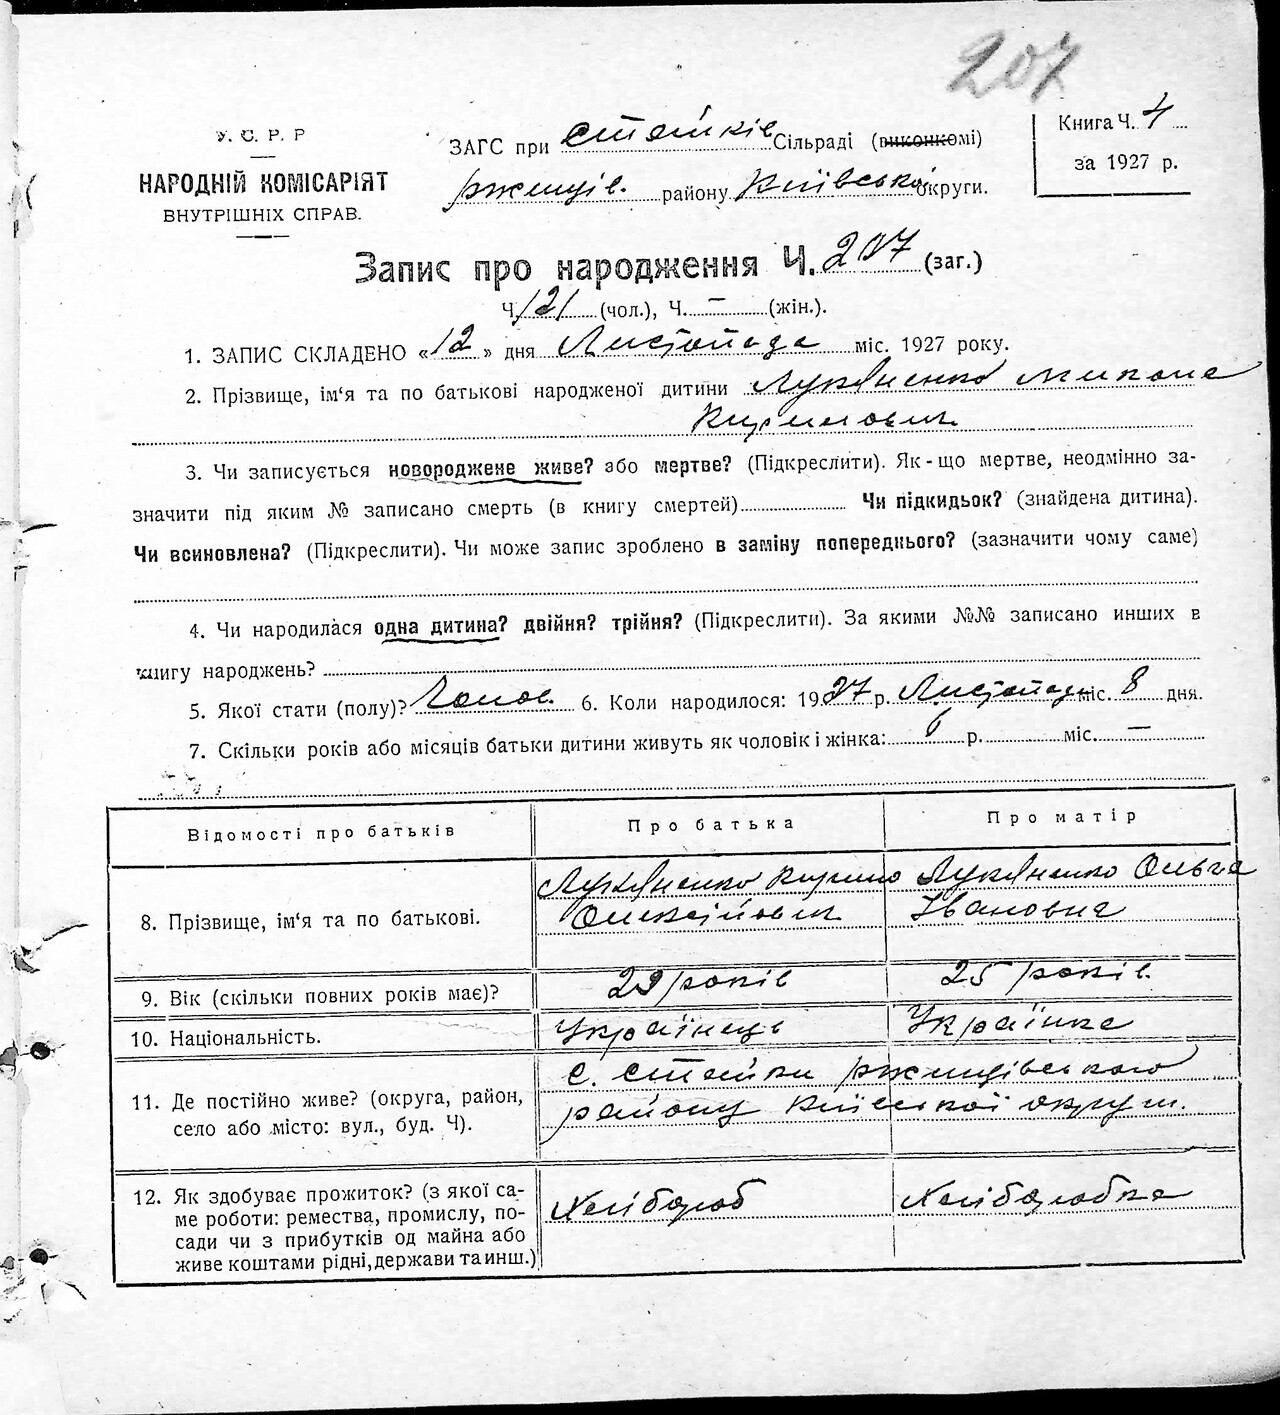 207
У. С. Р. Р
НАРОДНІЙ КОМІСАРІЯТ
ВНУТРІШНІХ СПРАВ.
ЗАГС при Стайків Сільраді (виконкомі)
Ржищів. району Київської округи.
Книга Ч. 4
за 1927 р.
Запис про народження Ч. 207 (заг.)
Ч. 121 (чол.), Ч. — (жін.).
1. ЗАПИС СКЛАДЕНО «12» дня Листопада міс. 1927 року.
2. Прізвище, ім‘я та по батькові народженої дитини Лукяненко Микола
Кирилович
3. Чи записується новороджене живе? або мертве? (Підкреслити). Як-що мертве, неодмінно за-
значити під яким № записано смерть (в книгу смертей) Чи підкидьок? (знайдена дитина).
Чи всиновлена? (Підкреслити). Чи може запис зроблено в заміну попереднього? (зазначити чому саме)
4. Чи народилася одна дитина? двійня? трійня? (Підкреслити). За якими №№ записано инших в
книгу народжень?
5. Якої стати (полу)? Чолов. 6. Коли народилося: 1927 р. Листопада міс. 8 дня.
7. Скільки років або місяців батьки дитини живуть як чоловік і жінка: 6 р. міс. —
Відомості про батьків Про батька Про матір
8. Прізвище, ім‘я та по батькові. Лукяненко Кирило Лукяненко Ольга
Олексійович Івановна
9. Вік (скільки повних років має)? 29 років 25 років.
10. Національність. Українець Українка
11. Де постійно живе? (округа, район,
село або місто: вул., буд. Ч). с. Стайки Ржищівського
району Київської округи.
12. Як здобуває прожиток? (з якої са-
ме роботи: ремества, промислу, по-
сади чи з прибутків од майна або
живе коштами рідні, держави та инш.) Хлібороб Хліборобка